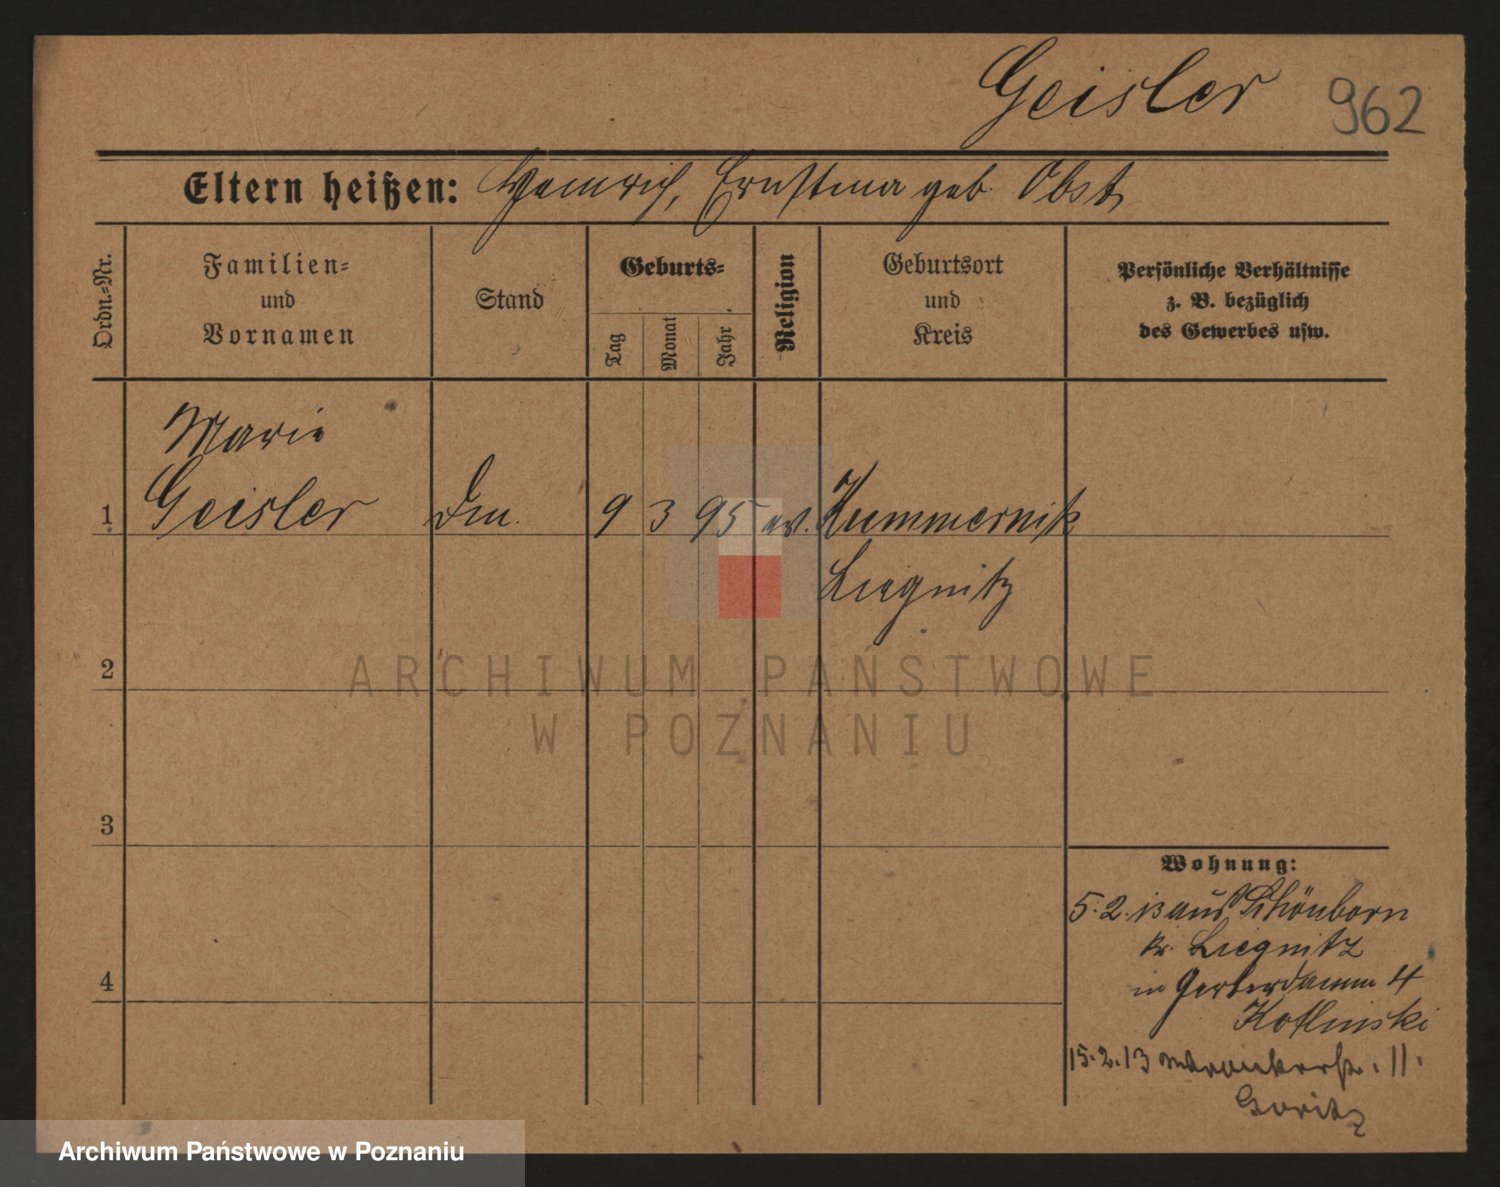 Geisler 962
Eltern heißen: Heinrich, Ernstina geb Obst
Ordn.=Nr.
Familien=
und
Vornamen
Stand
Geburts=
Tag
Monat
Jahr
Religion
Geburtsort
und
Kreis
Persönliche Verhältnisse
z. B. bezüglich
des Gewerbes usw.
Marie
1 Geisler 9 3 95 ev. Kummernik
Liegnitz
2
3
4
Wohnung:
5.2.13 aus Schönborn
Kr. Liegnitz
in Gerberdamm 4
Kotlinski
15.2.13 11.
Goritz
ARCHIWUM PAŃSTWOWE
W POZNANIU
Archiwum Państwowe w Poznaniu